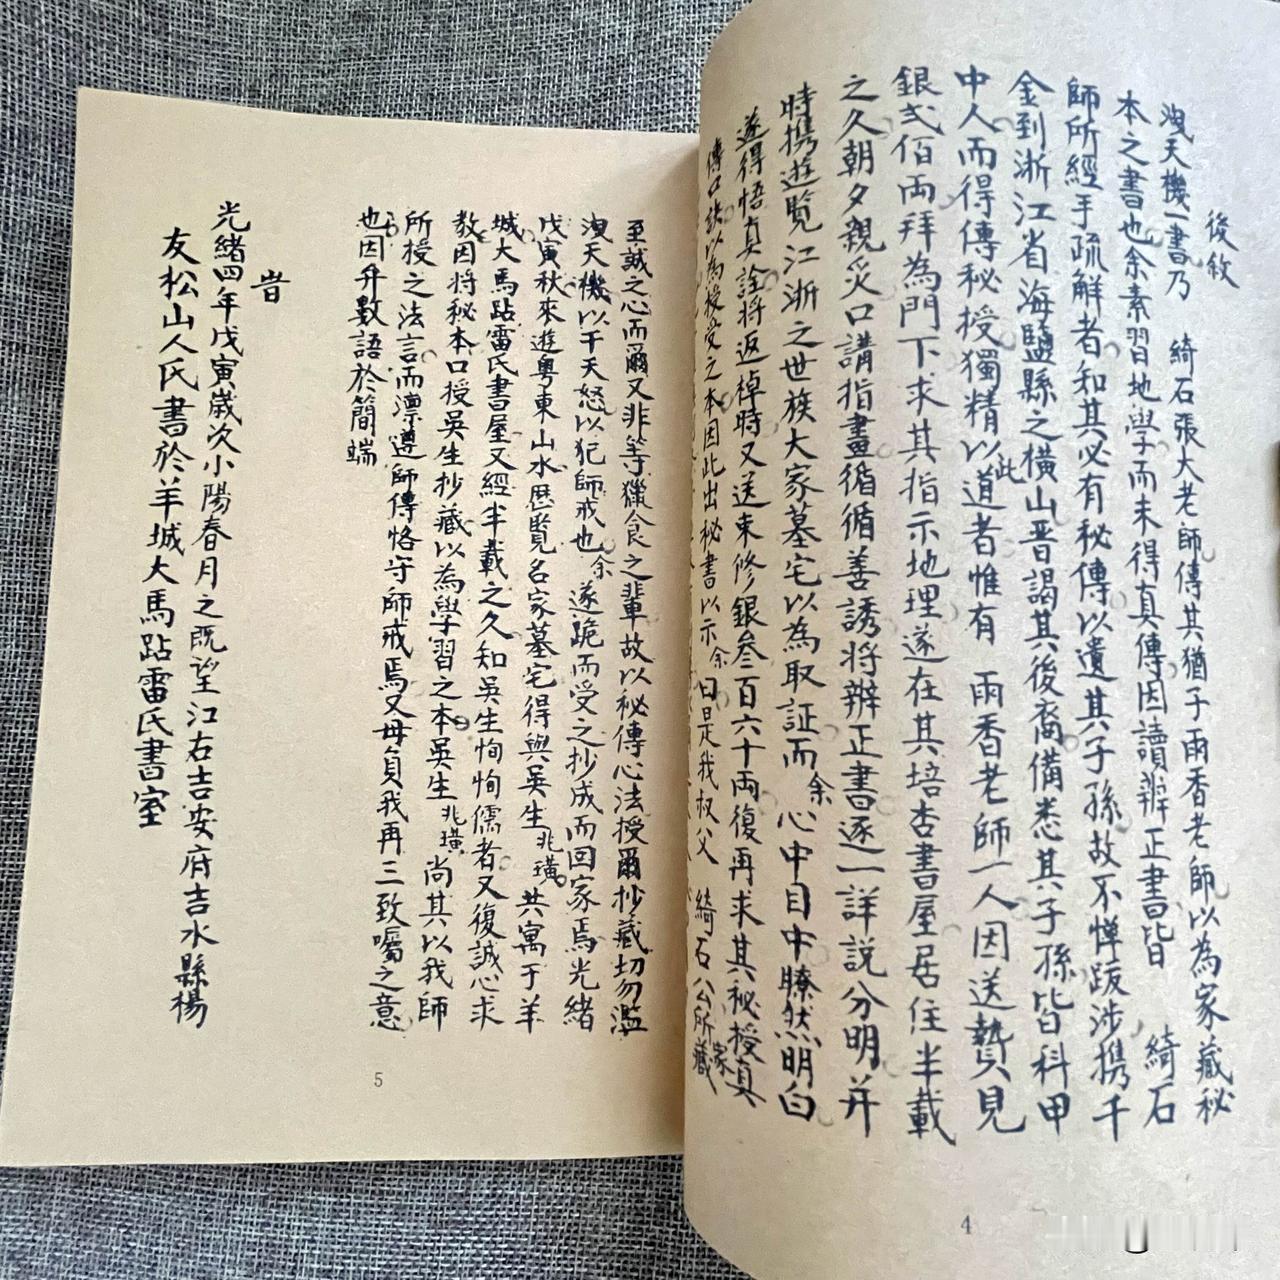 後敘
洩天機一書乃 綺石張大老師傳其猶子雨香老師以為家藏秘
本之書也余素習地學而未得真傳因讀辨正書皆 綺石
師所經手疏解者知其必有秘傳以遺其子孫故不憚跋涉携千
金到浙江省海鹽縣之橫山晋謁其後裔備悉其子孫皆科甲
中人而得傳秘授獨精以此道者惟有 雨香老師一人因送贄見
銀弍佰両拜為門下求其指示地理遂在其培杏書屋居住半載
之久朝夕親炙口講指畫循循善誘將辨正書逐一詳說分明并
時携遊覽江浙之世族大家墓宅以為取証而余心中目中瞭然明白
遂得悟真詮將返棹時又送束修銀叁百六十両復再求其秘授真
傳口訣以為授受之本因此出秘書以示余曰是我叔父 綺石公所家藏
至誠之心而爾又非等獵食之輩故以秘傳心法授爾抄藏切勿濫
洩天機以干天怒以犯師戒也余遂跪而受之抄成而回家焉光緒
戊寅秋來遊粵東山水歷覽名家墓宅得與吳生兆璜共寓于羊
城大馬跕雷氏書屋又經半載之久知吳生恂恂儒者又復誠心求
教因將秘本口授吳生抄藏以為學習之本吳生兆璜尚其以我師
所授之法言而凛遵師傳恪守師戒焉又毋負我再三致囑之意
也因弁數語於簡端
旹
光緒四年戊寅歲次小陽春月之既望江右吉安府吉水縣楊
友松山人氏書於羊城大馬跕雷氏書室
5
4